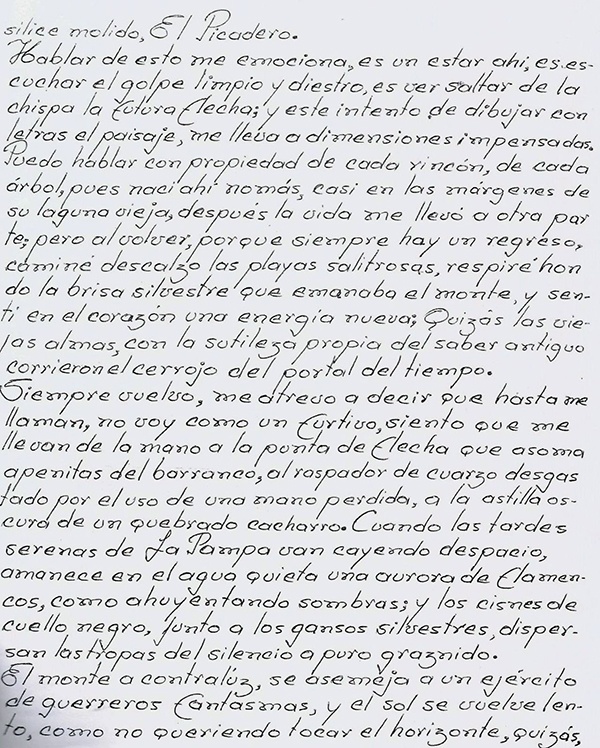 silice molido, El Picadero.
Hablar de esto me emociona, es un estar ahi, es es-
cuchar el golpe limpio y diestro, es ver saltar de la
chispa la futura flecha; y este intento de dibujar con
letras el paisaje, me lleva a dimensiones impensadas.
Puedo hablar con propiedad de cada rincón, de cada
árbol, pues naci ahi nomás, casi en las márgenes de
su laguna vieja, después la vida me llevó a otra par
te; pero al volver, porque siempre hay un regreso,
caminé descalzo las playas salitrosas, respiré hon
do la brisa silvestre que emanaba el monte, y sen-
ti en el corazón una energía nueva; Quizás las vie-
jas almas, con la sutileza propia del saber antiguo
corrieron el cerrojo del portal del tiempo.
Siempre vuelvo, me atrevo a decir que hasta me
llaman, no voy como un furtivo, siento que me
llevan de la mano a la punta de flecha que asoma
apenitas del barranco, al raspador de cuarzo desgas
tado por el uso de una mano perdida, a la astilla os-
cura de un quebrado cacharro. Cuando las tardes
serenas de La Pampa van cayendo despacio,
amanece en el agua quieta una aurora de flamen-
cos, como ahuyentando sombras; y los cisnes de
cuello negro, junto a los gansos silvestres, disper-
san las tropas del silencio a puro graznido.
El monte a contralúz, se asemeja a un ejército
de guerreros fantásmas, y el sol se vuelve len-
to, como no queriendo tocar el horizonte, quizás,